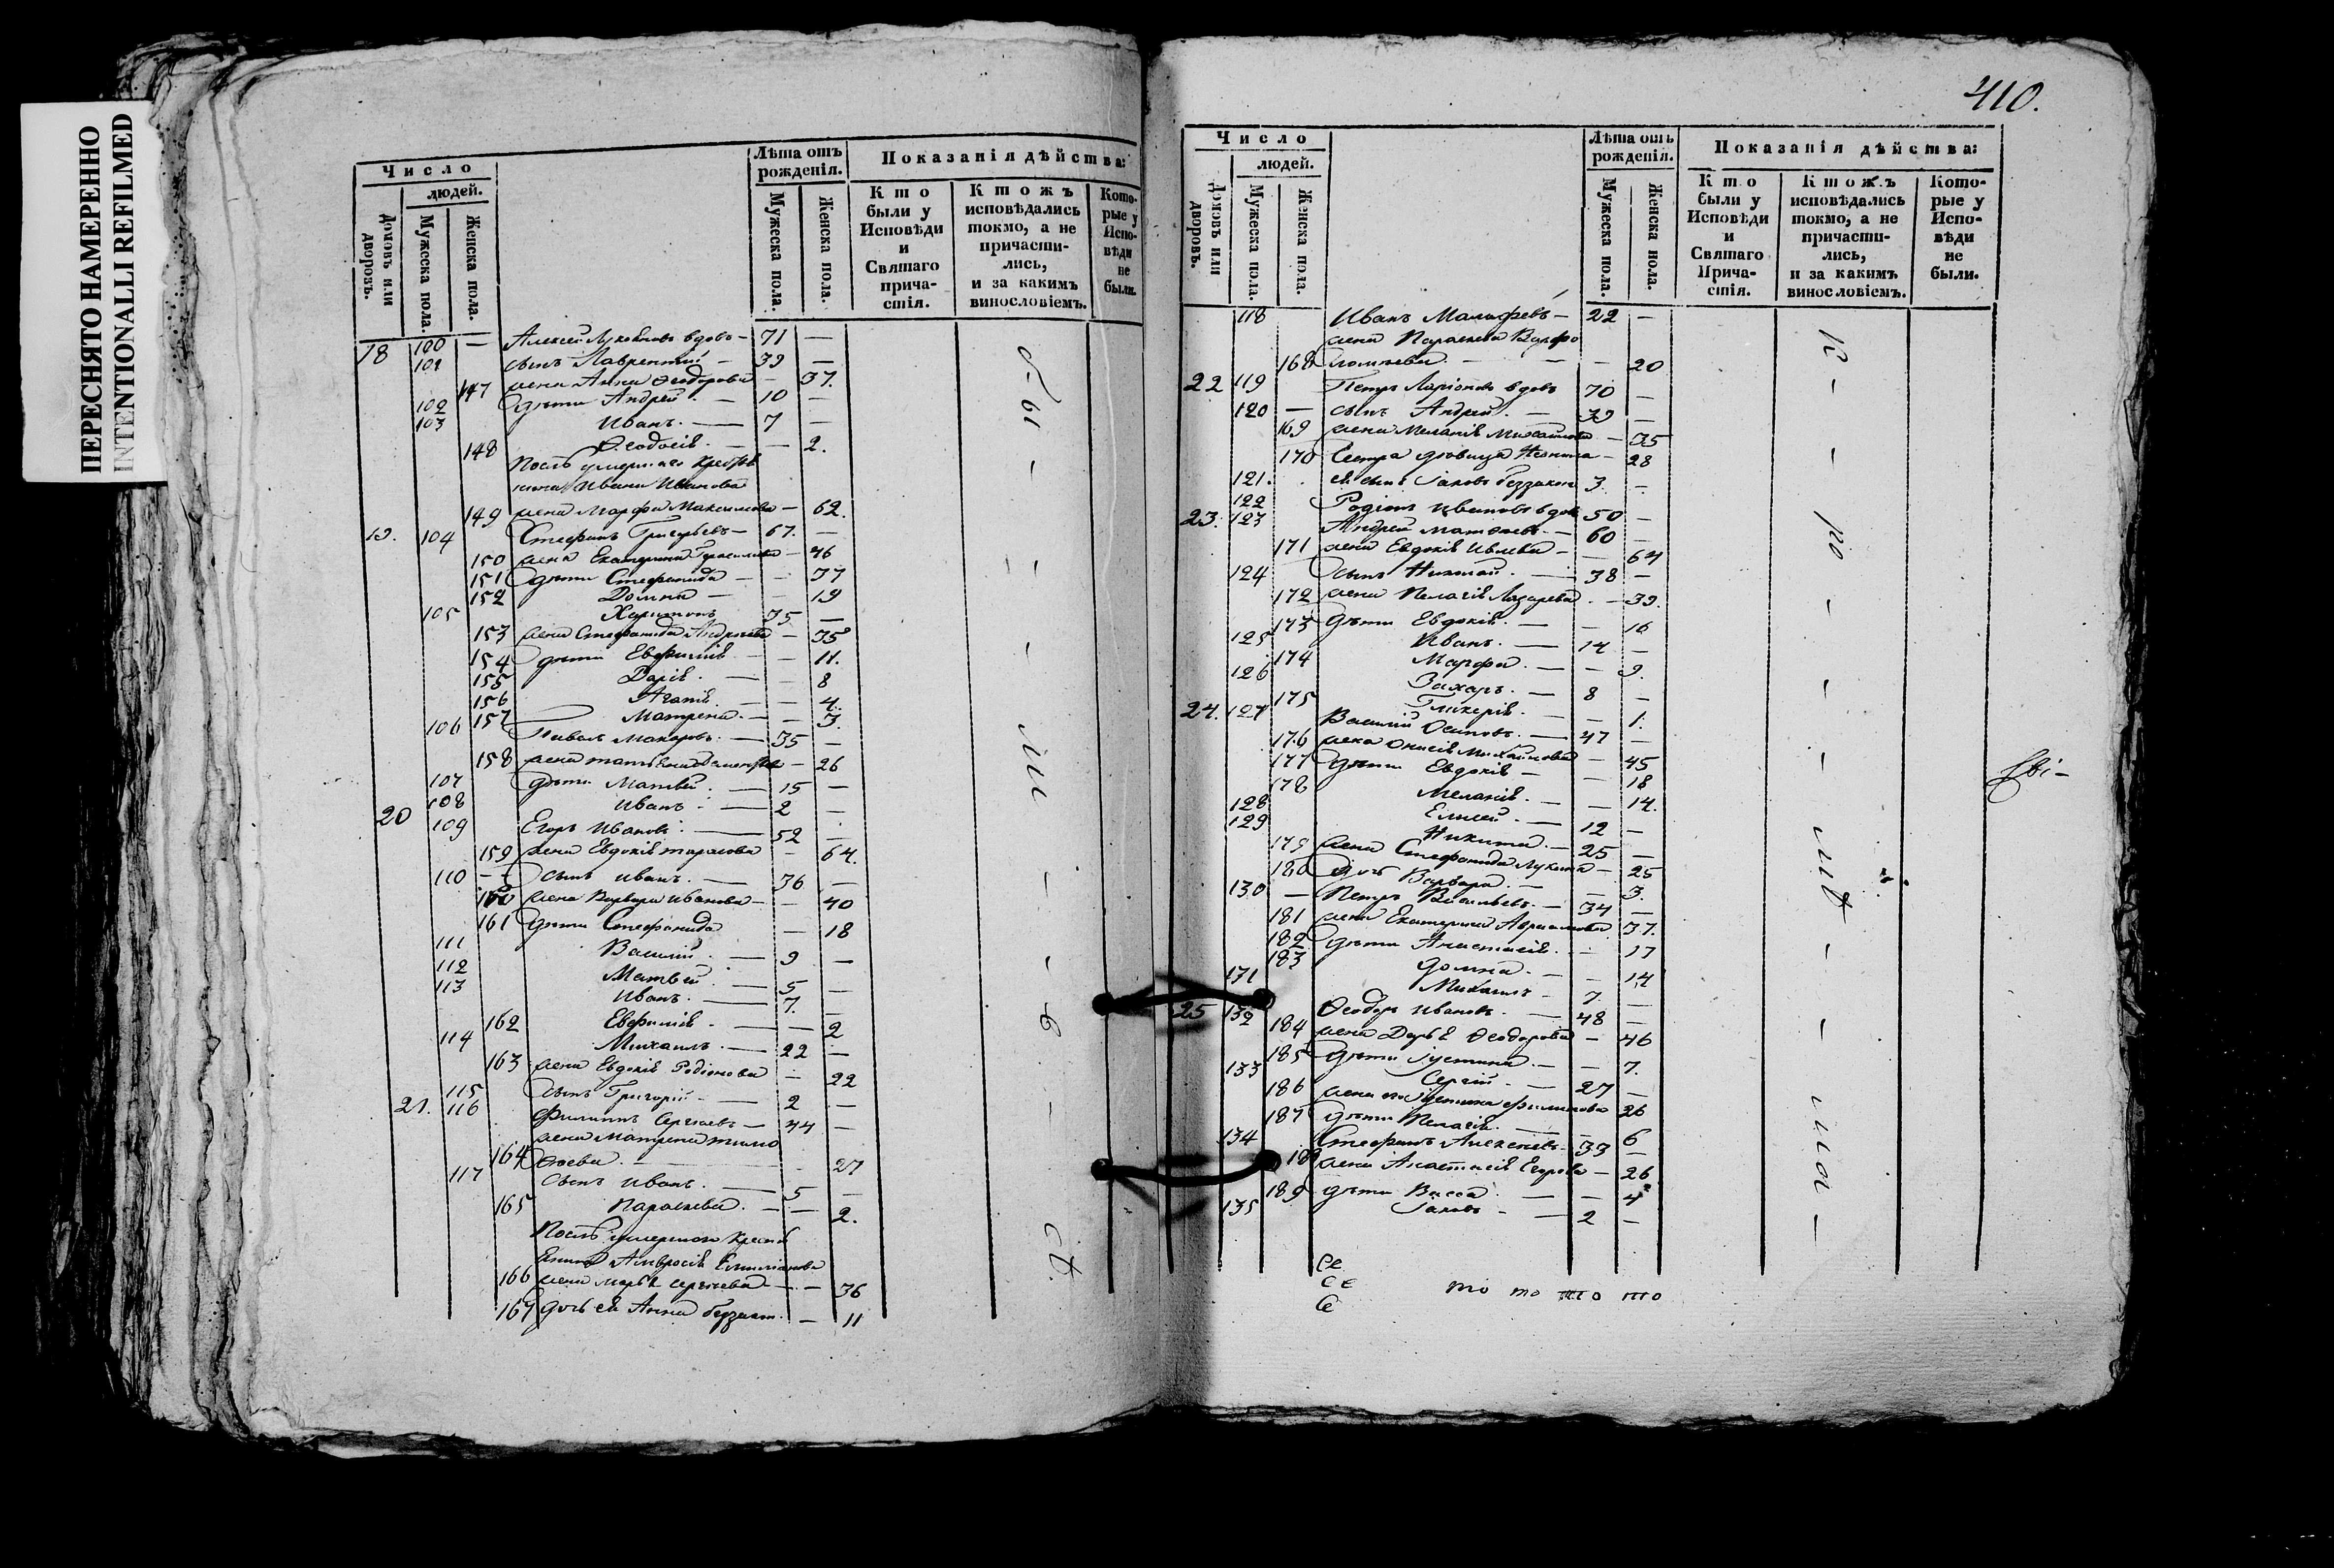 ПЕРЕСНЯТО НАМЕРЕННО
INTENTIONALLI REFILMED
Число
людей.
Домовъ или дворовъ.
Мужеска пола.
Женска пола.
Лѣта отъ рожденія.
Мужеска пола.
Женска пола.
Показанія дѣйства:
Кто были у Исповѣди и Святаго причастія.
Ктожъ исповѣдались токмо, а не причастились, и за какимъ винословіемъ.
Которые у Исповѣди не были.
18 100 — Алексей вдовъ — 71 —
101 сынъ Лаврентій — 39 —
147 жена Анна Ѳеодорова — 37.
102 дѣти Андрей — 10 —
103 Иванъ — 7 —
148 Ѳеодосія — — 2.
После умершаго крестья
нина Ивана Иванова
149 жена Марфа Максимова — 62.
19. 104 Стефанъ Григорьевъ — 67. —
150 жена Екатерина Герасимова — 46
151 дѣти Стефанида — — 37
152 Домна — — 19
105 Харитонъ 35 —
153 жена Стефанида Андреева — 35
154 дѣти Евфимія — — 11.
155 Дарія — — 8
156 Агапія — — 4.
157 Матрена — — 3.
106 Павелъ Макаровъ — 35 —
158 жена Татьяна — 26
107 дѣти Матвей — 15 —
108 Иванъ — 2 —
20 109 Егоръ Ивановъ — 52 —
159 жена Евдокія Тарасова — 64.
110 — сынъ Иванъ — 36 —
160 жена Варвара Иванова — — 40
161 дѣти Стефанида — 18
111 Василій — 9 —
112 Матвей — 5 —
113 Иванъ — 7. —
162 Евфимія — — 2
114 Михаилъ — 22 —
163 жена Евдокія Родіонова — 22
115 сынъ Григорій — 2 —
21. 116 Филиппъ Сергѣевъ — 44 —
жена Матрена Тимо
164 ѳеева — 27
117 сынъ Иванъ — 5 —
165 Параскева — — 2.
После умершаго кресть
янина Амвросія Емиліанова
166 жена Марья Сергѣева — — 36
167 дочь ея Анна — 11
б - ы - - - л и - - в - сѣ.
410.
Число
людей.
Домовъ или дворовъ.
Мужеска пола.
Женска пола.
Лѣта отъ рожденія.
Мужеска пола.
Женска пола.
Показанія дѣйства:
Кто были у Исповѣди и Святаго Причастія.
Ктожъ исповѣдались токмо, а не причастились, и за какимъ винословіемъ.
Которые у Исповѣди не были.
118 Иванъ — 22 —
жена Параскева Варфо
168 ломеева — — 20
22 119 Петръ Ларіоновъ вдовъ 70 —
120 — сынъ Андрей — 39 —
169 жена Меланія Михайлова — 35
170 Сестра дѣвица — 28
121. ея сынъ Іаковъ 3. —
122 Родіонъ Ивановъ вдовъ 50 —
23. 123 Андрей Матвѣевъ — 60 —
171 жена Евдокія — — 64
124 сынъ Николай — 38 —
172 жена Пелагія Лазарева — 39.
173 дѣти Евдокія — — 16
125 Иванъ — 14 —
174 Марфа — — 9.
126 Захаръ — 8 —
175 Гликерія — — 1.
24. 127 Василій Осиповъ — 47 —
176 жена Анисія Михайлова — 45
177 дѣти Евдокія — — 18
178 Меланія — — 14.
128 Елисей — 12 —
129 Никита — 25 —
179 жена Стефанида Лукина — 25
180 дочь Варвара — — 3.
130 — Петръ Васильевъ — 34 —
181 жена Екатерина 37.
182 дѣти Анастасія — 17
183 Домна — — 14
171 Михаилъ — 7. —
25 132 Ѳеодоръ Ивановъ — 48 —
184 жена Дарья Ѳеодорова — 46
185 дѣти Іустина — — 7.
133 Сергій — 27 —
186 жена Филипова 26
187 дѣти Пелагія — 6
134 Стефанъ Алексеевъ — 33 —
188 жена Анастасія Егорова — 26
189 дѣти Васса — — 4
135 Іаковъ — 2 —
Се
Се
Се
то то то то